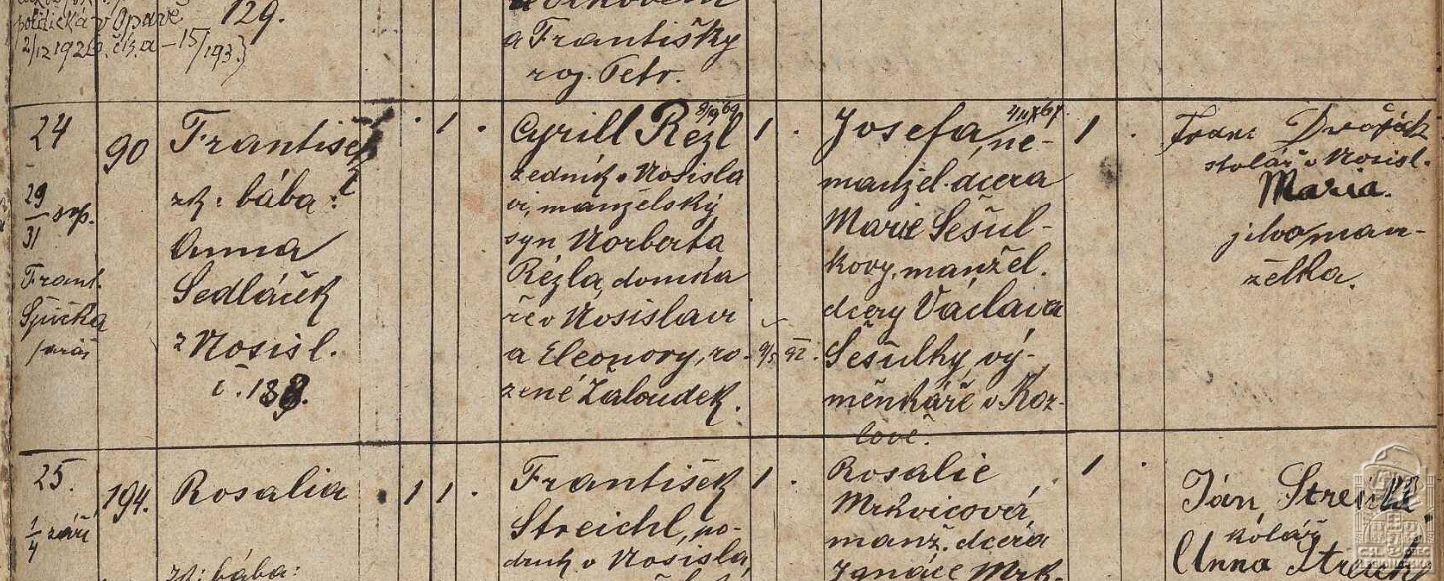 politická v Opavě
2/12 1926. čís. a-15/193}
129.
a Františky
roj. Petr.
24
29
31 srp.
Frant.
Špička
farář
90
František
zk: bába:
Anna
Sedláček
z Nosisl.
č. 188.
1
Cyrill Rézl
zedník v Nosisla
vi, manželský
syn Norberta
Rézla, domka
ře v Nosislavi
a Eleonory, ro-
zené Žaloudek.
1
9/5 92.
Josefa, ne-
manžel. dcera
Marie Šešul-
kovy, manžel.
dcery Václava
Šešulky, vý-
měnkáře v Koz-
lově.
1
Franc Dvořák
stolář v Nosisl.
Maria
jeho man-
želka.
25.
1
4 září
194.
Rosalia
zk: bába:
1 1
František
Streichl, po-
druh v Nosisla
1
Rosalie
Mrkvicová,
manž. dcera
Ignáce Mrk-
1
Ján
kolář
Anna